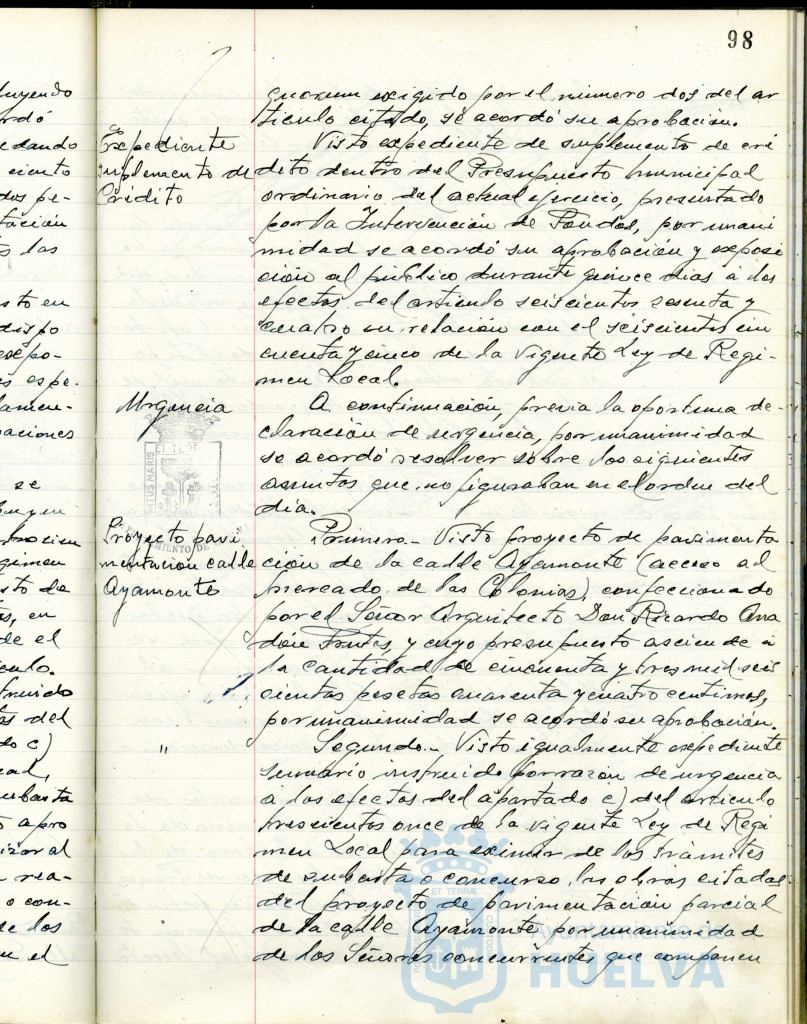 98
quorum exigido por el número dos del ar
tículo citado, se acordó su aprobación.
Expediente
suplemento de
Crédito
Visto expediente de suplemento de cré
dito dentro del Presupuesto municipal
ordinario del actual ejercicio, presentado
por la Intervención de Fondos, por unani
midad se acordó su aprobación y exposi
ción al público durante quince días a los
efectos del artículo seiscientos sesenta y
cuatro en relación con el seiscientos cin
cuenta y cinco de la vigente Ley de Regi-
men Local.
Urgencia
A continuación, previa la oportuna de-
claración de urgencia, por unanimidad
se acordó resolver sobre los siguientes
asuntos que no figuraban en el orden del
día.
Proyecto pavi
mentación calle
Ayamonte
Primero.- Visto proyecto de pavimenta
ción de la calle Ayamonte (acceso al
mercado de las Colonias), confeccionado
por el Señor Arquitecto Don Ricardo Ana
dón Frutos, y cuyo presupuesto asciende a
la cantidad de cincuenta y tres mil seis
cientas pesetas cuarenta y cuatro centimos,
por unanimidad se acordó su aprobación.
"
Segundo.- Visto igualmente expediente
sumario instruido por razón de urgencia
a los efectos del apartado c) del artículo
trescientos once de la vigente Ley de Regi
men Local para eximir de los trámites
de subasta o concurso las obras citadas
del proyecto de pavimentación parcial
de la calle Ayamonte, por unanimidad
de los Señores concurrentes que componen
luyendo
rdó
edando
ciento
dos pe-
tación
s las
sto en
dispo
expo-
s espe.
lamen-
aciones
se
gimen
sto de
tos, en
de el
culo.
truido
tos del
do c)
cal,
subasta
o apro
izar al
rea-
o con-
de los
en el
Ayuntamiento de
HUELVA